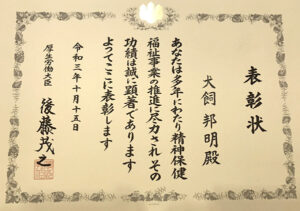 表彰状
犬飼邦明殿
あなたは多年にわたり精神保健
福祉事業の推進に尽力されその
功績は誠に顕著であります
よってここに表彰します
令和三年十月十五日
厚生労働大臣
後藤茂之